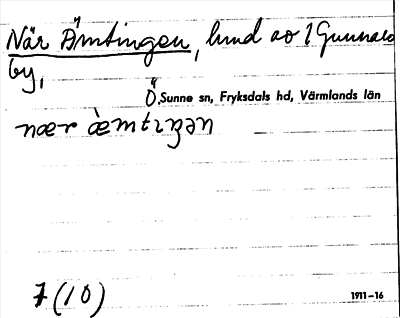 När Ämtingen, lund av 1 Gunnars
by,
Ö. Sunne sn, Fryksdals hd, Värmlands län
7(10)
1911-16